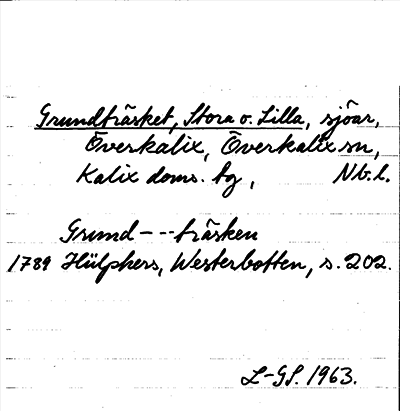 Grundträsket, Stora o. Lilla, sjöar,
Överkalix, Överkalix sn,
Kalix doms. tg, Nb. l.
Grund---träsken
1789 Hülphers, Westerbotten, s. 202.
L-GS. 1963.